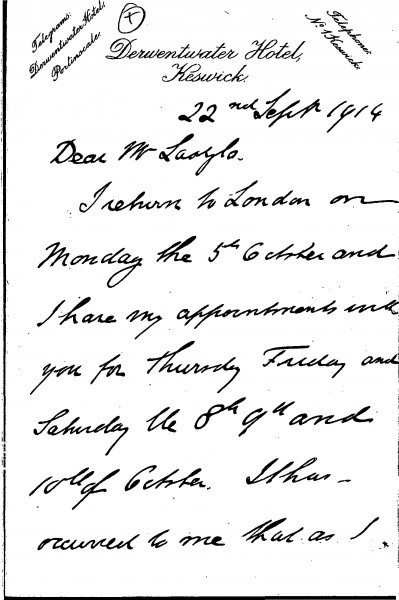 Telegrams:
Derwentwater Hotel,
Portinscale.
Telephone:
No. 1 Keswick.
Derwentwater Hotel,
Keswick.
22nd Sept 1914
Dear Mr Laszlo.
I return to London on
Monday the 5th October and
I have my appointments with
you for Thursday Friday and
Saturday the 8th 9th and
10th of October. It has
occurred to me that as I